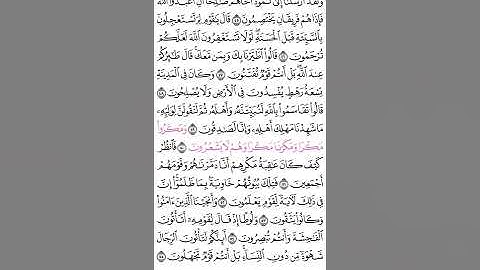 ولقد أرسلنا إلى ثمود أخاهم صالحا أن اعبدوا الله
فإذا هم فريقان يختصمون ٤٥ قال يا قوم لم تستعجلون
بالسيئة قبل الحسنة لولا تستغفرون الله لعلكم
ترحمون ٤٦ قالوا اطيرنا بك وبمن معك قال طائركم
عند الله بل أنتم قوم تفتنون ٤٧ وكان في المدينة
تسعة رهط يفسدون في الأرض ولا يصلحون ٤٨
قالوا تقاسموا بالله لنبيتنه وأهله ثم لنقولن لوليه
ما شهدنا مهلك أهله وإنا لصادقون ٤٩ ومكروا
مكرا ومكرنا مكرا وهم لا يشعرون ٥٠ فانظر
كيف كان عاقبة مكرهم أنا دمرناهم وقومهم
أجمعين ٥١ فتلك بيوتهم خاوية بما ظلموا إن
في ذلك لآية لقوم يعلمون ٥٢ وأنجينا الذين آمنوا
وكانوا يتقون ٥٣ ولوطا إذ قال لقومه أتأتون
الفاحشة وأنتم تبصرون ٥٤ أئنكم لتأتون الرجال
شهوة من دون النساء بل أنتم قوم تجهلون ٥٥